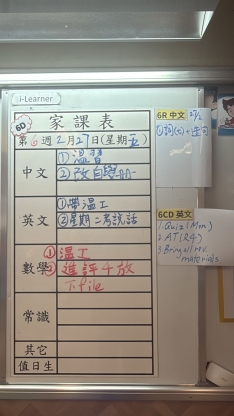 i-Learner
6D
家課表
第6週2月27日(星期五)
中文
①溫習
②改自學冊
英文
①帶溫工
②星期一考說話
數學
①溫工
②進評4放
下file
常識
其它
值日生
6R 中文 27/2
6CD 英文
1. Quiz (Mon)
2. AT (R4)
materials